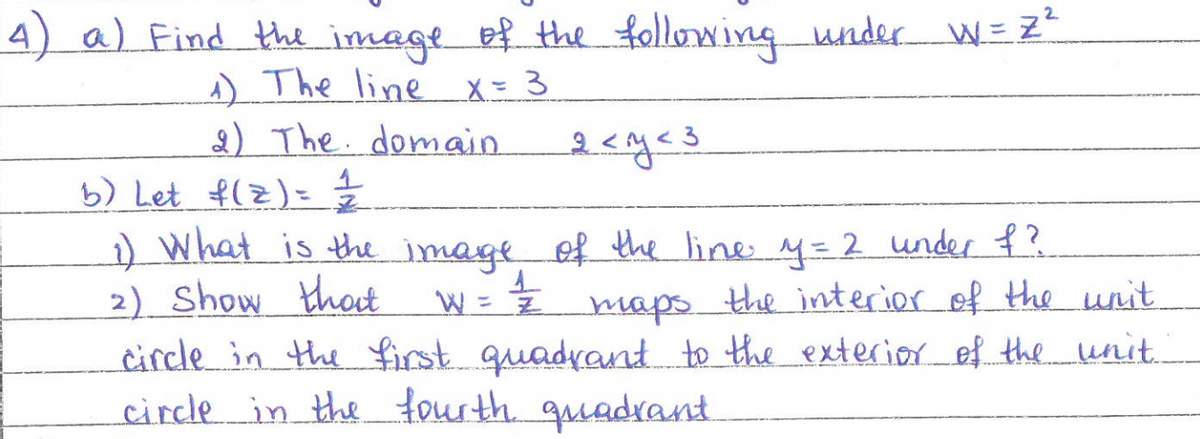 4) a) Find the image of the following under W = z²
1) The line x = 3
2) The. domain 2 < y < 3
b) Let f(z) = 1/z
1) What is the image of the line y = 2 under f?
2) Show that W = 1/z maps the interior of the unit
circle in the first quadrant to the exterior of the unit
circle in the fourth quadrant